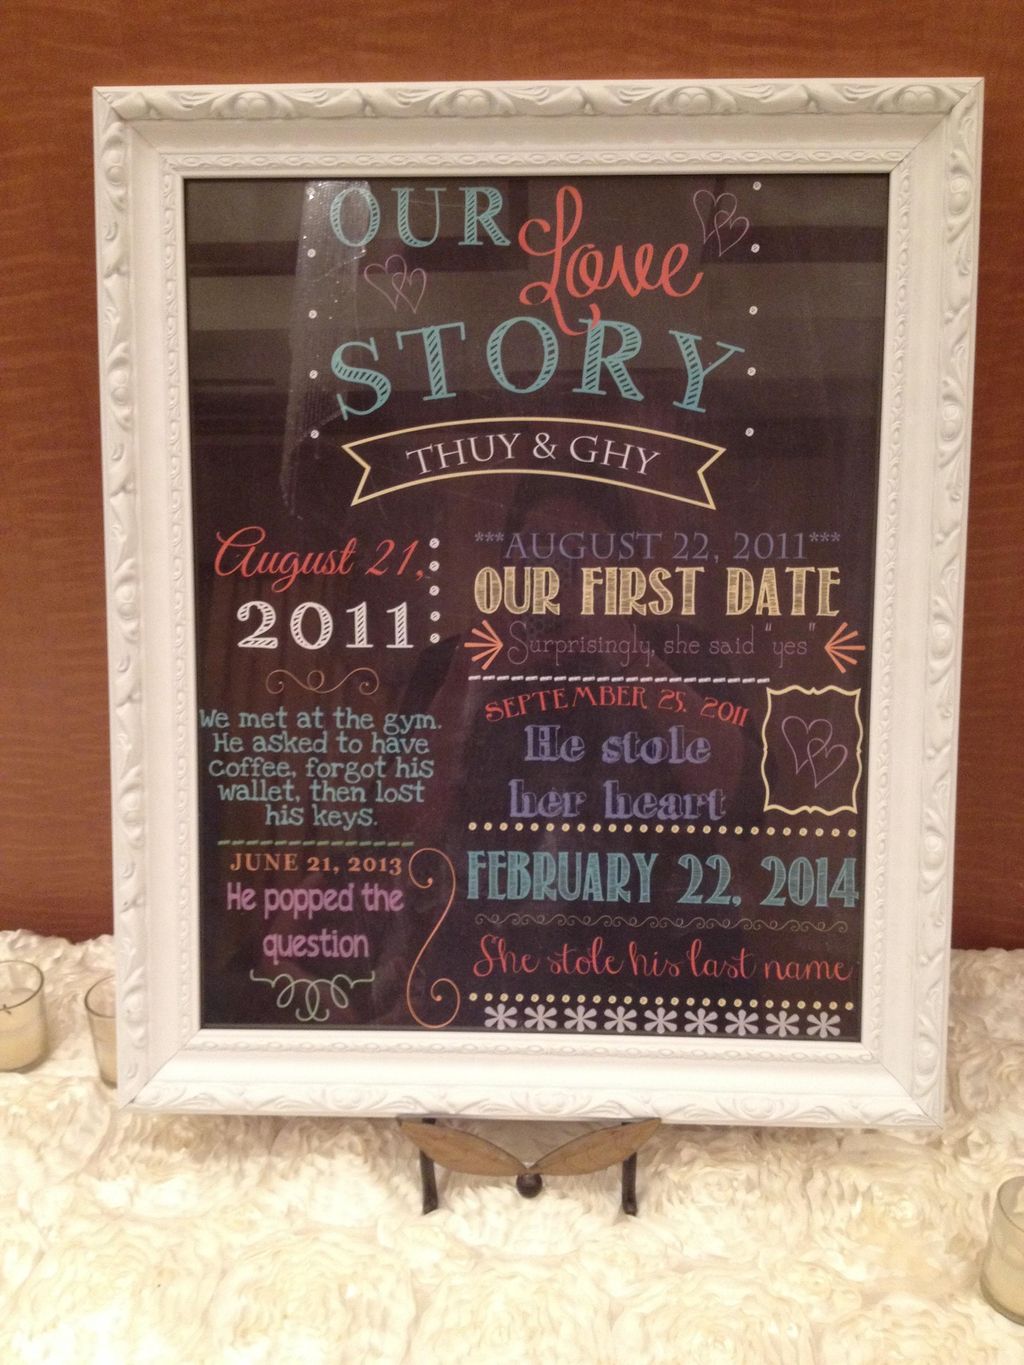 OUR
Love
STORY
THUY & GHY
August 21,
2011
We met at the gym.
He asked to have
coffee, forgot his
wallet, then lost
his keys.
JUNE 21, 2013
He popped the
question
***AUGUST 22, 2011***
OUR FIRST DATE
Surprisingly, she said "yes"
SEPTEMBER 25, 2011
He stole
her heart
FEBRUARY 22, 2014
She stole his last name